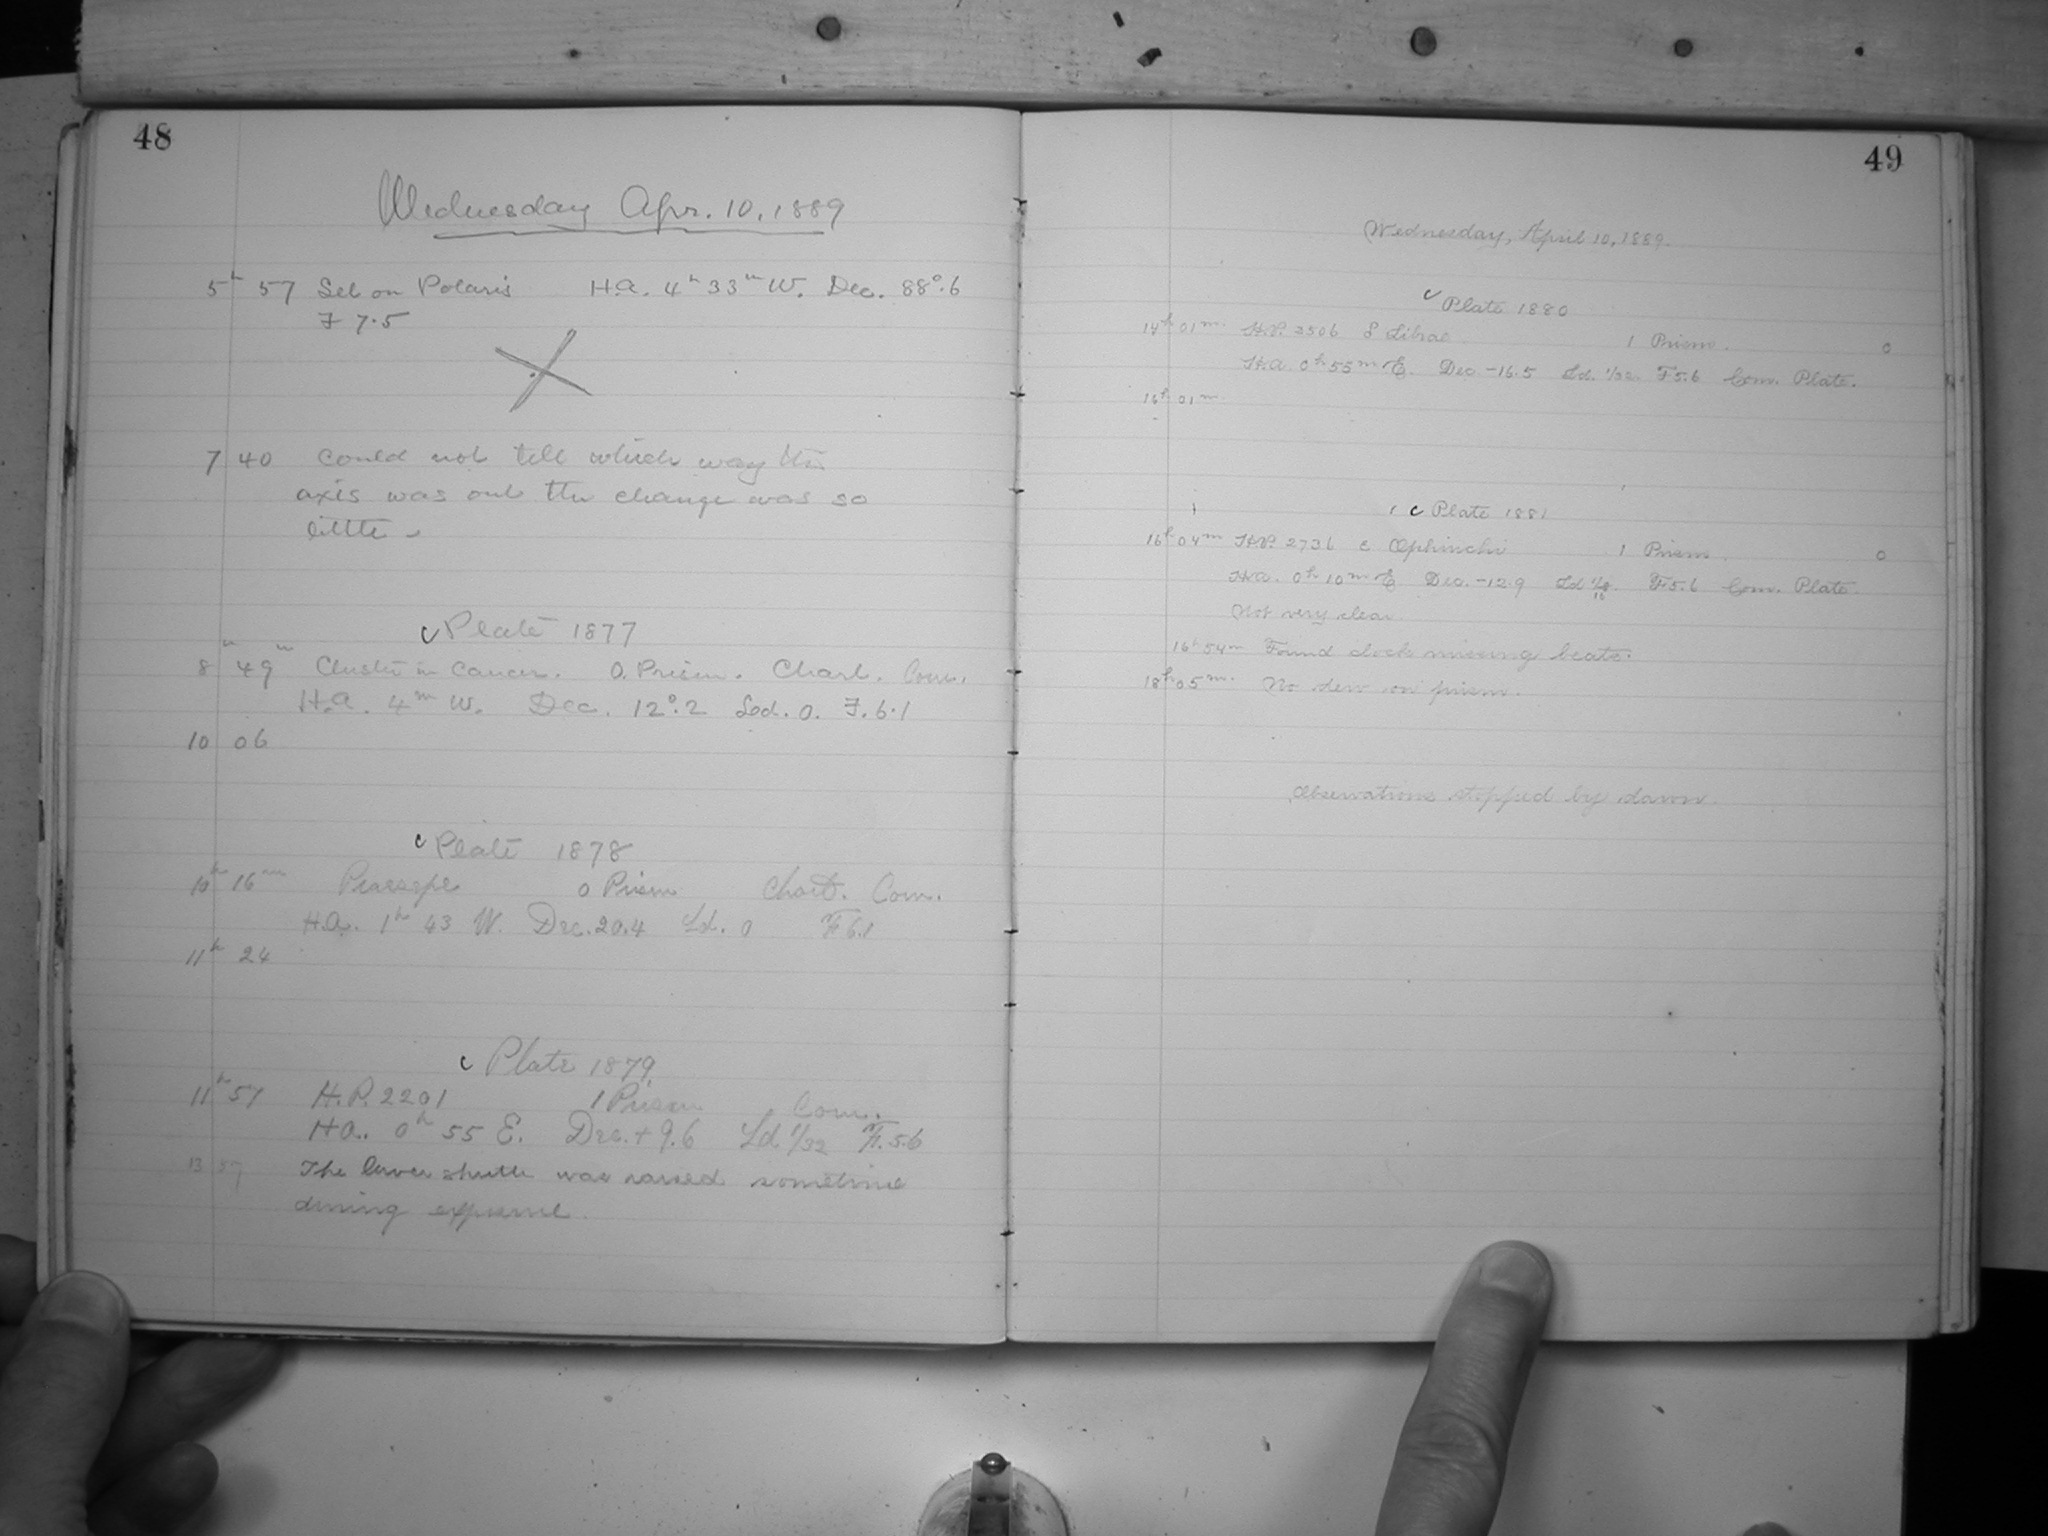 48
Wednesday Apr. 10, 1889
5h 57 Set on Polaris H.A. 4h 33m W. Dec. 88°.6
F 7.5
7 40 Could not tell which way the
axis was out the change was so
little.
c Plate 1877
8h 49m Cluster in Cancer. 0. Prism. Chart. Com.
H.A. 4m W. Dec. 12°.2 Ld. 0. F. 6.1
10 06
c Plate 1878
10h 16m Praesepe 0 Prism Chart. Com.
H.A. 1h 43 W. Dec. 20.4 Ld. 0 F 6.1
11h 24
c Plate 1879
11h 57 H.P. 2201 1 Prism Com.
H.A. 0h 55 E. Dec. + 9.6 Ld. 1/32 F. 5.6
13 57 The lower shutter was raised sometime
during exposure.
49
Wednesday, April 10, 1889.
c Plate 1880
14h 01m H.P. 3506 Librae 1 Prism. 0
H.A. 0h 55m E. Dec. -16.5 Ld. 1/32. F 5.6 Com. Plate.
16h 01m
c Plate 1881
16h 04m H.P. 2736 Ophiuchi 1 Prism. 0
H.A. 0h 10m E. Dec. -12.9 Ld F 5.6 Com. Plate.
Not very clear
16h 54m Found clock missing beats.
18h 05m. No dew on prism.
Observations stopped by dawn.